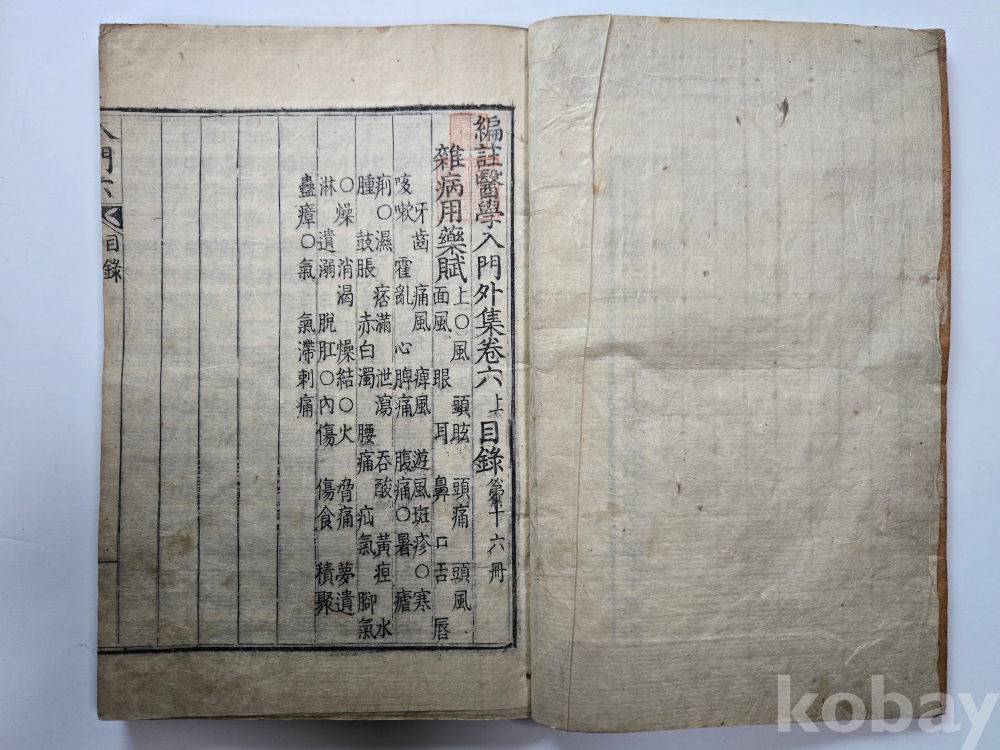 編註醫學入門外集卷六上目錄 第十六冊
雜病用藥賦 上○風 頭眩 頭痛 頭風
面風 眼 耳 鼻 口舌 唇
牙齒 痛風 痺風 遊風斑疹○寒
咳嗽 霍亂 心脾痛 腹痛○暑 瘧
痢○濕 痞滿 泄瀉 吞酸 黃疸 水
腫 鼓脹 赤白濁 腰痛 疝氣 腳氣
○燥 消渴 燥結○火 脅痛 夢遺
淋 遺溺 脫肛○內傷 傷食 積聚
蠱瘴○氣 氣滯刺痛
入門六 目錄
kobay